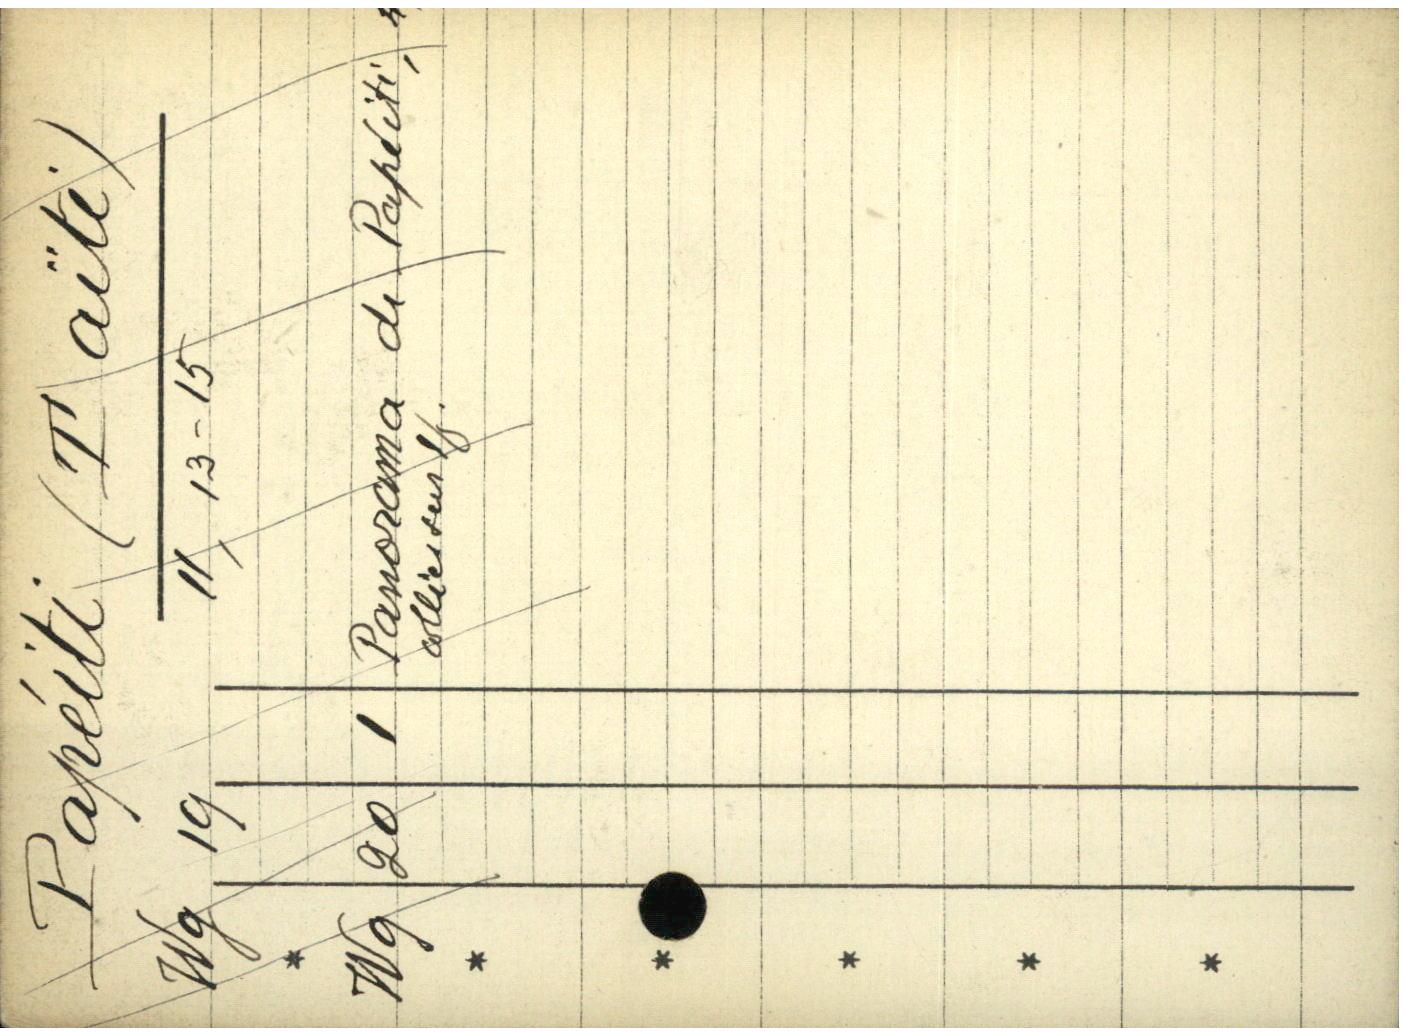 Papéiti (Taïti)
Wg 19 11, 13-15
Wg 20 1 Panorama de Papéiti, 4
colliés sur 1 f.